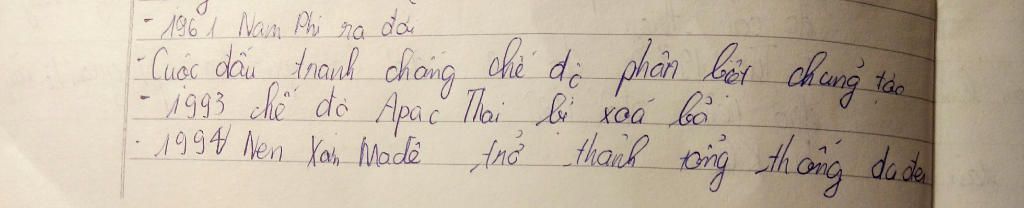 - 1961 Nam Phi ra đời
- Cuộc đấu tranh chống chế độ phân biệt chủng tộc
- 1993 chế độ Apac Thai bị xoá bỏ
- 1994 Nen Xan Madê trở thành tổng thống da đen